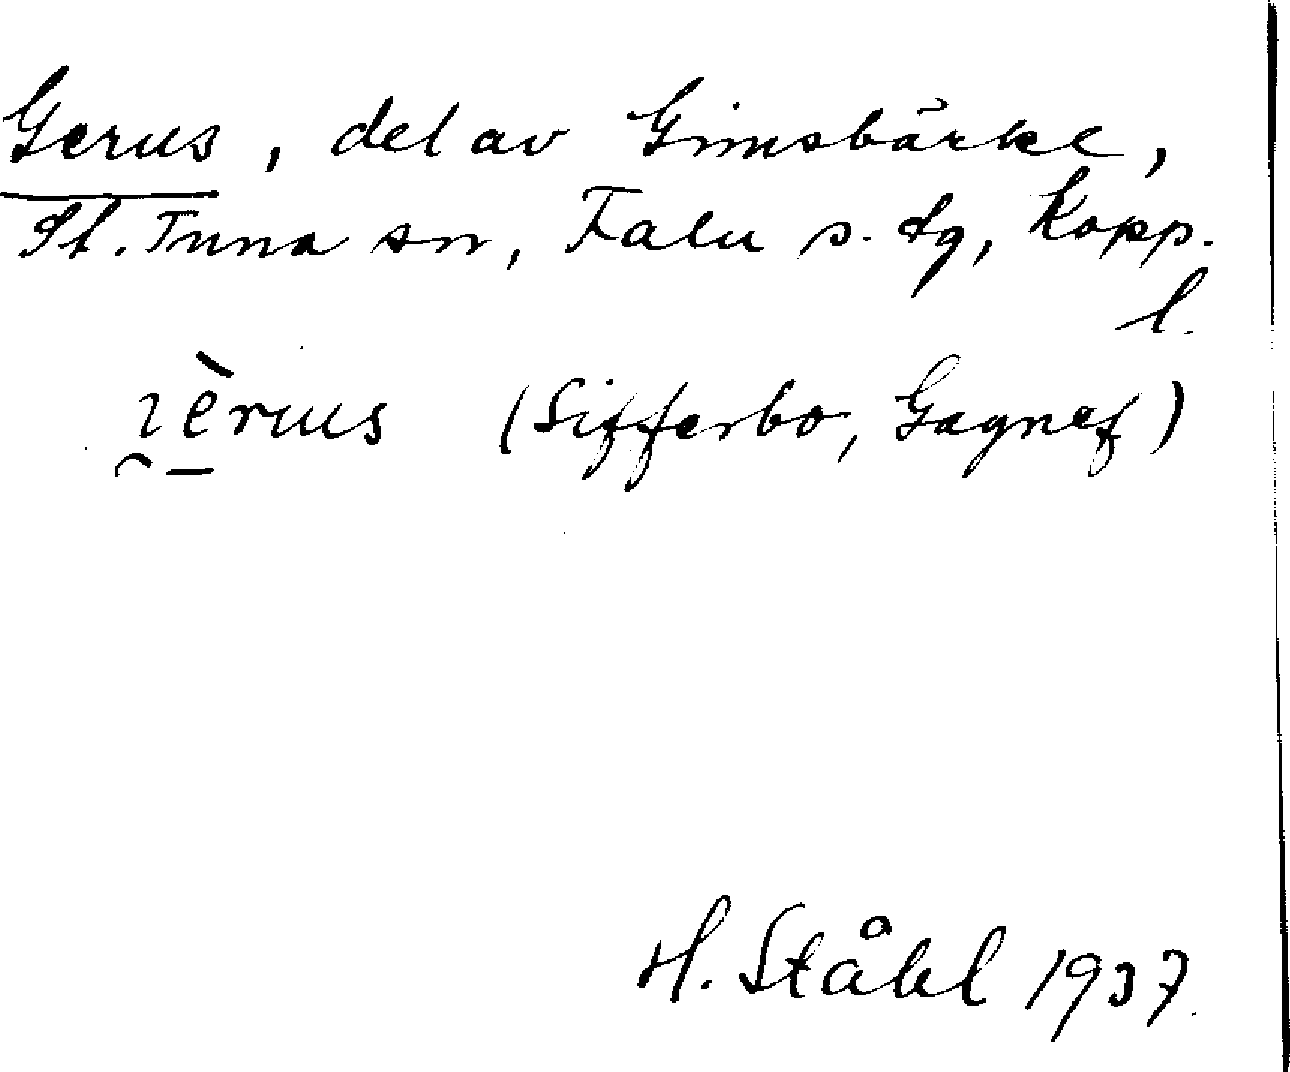 Gerus, del av Gimsbärke,
St. Tuna sn, Falu s. dg, Kopp.
l.
(Sifferbo, Gagnef)
H. Ståhl 1937.